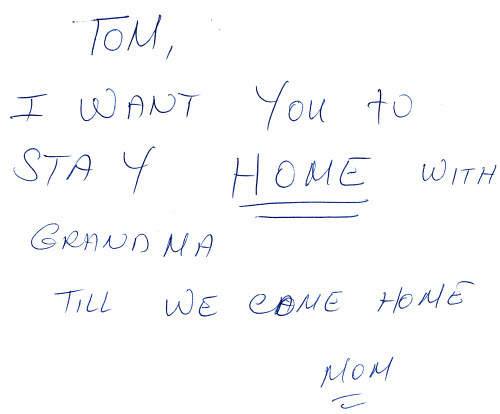 TOM,
I WANT YOU TO
STAY HOME WITH
GRANDMA
TILL WE COME HOME
MOM